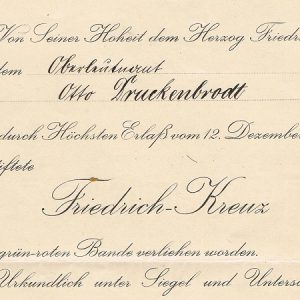 Von Seiner Hoheit dem Herzog Friedr
dem Oberleutnant
Otto Druckenbrodt
durch Höchsten Erlaß vom 12. Dezember
iftete
Friedrich-Kreuz
grün-roten Bande verliehen worden.
Urkundlich unter Siegel und Untersc